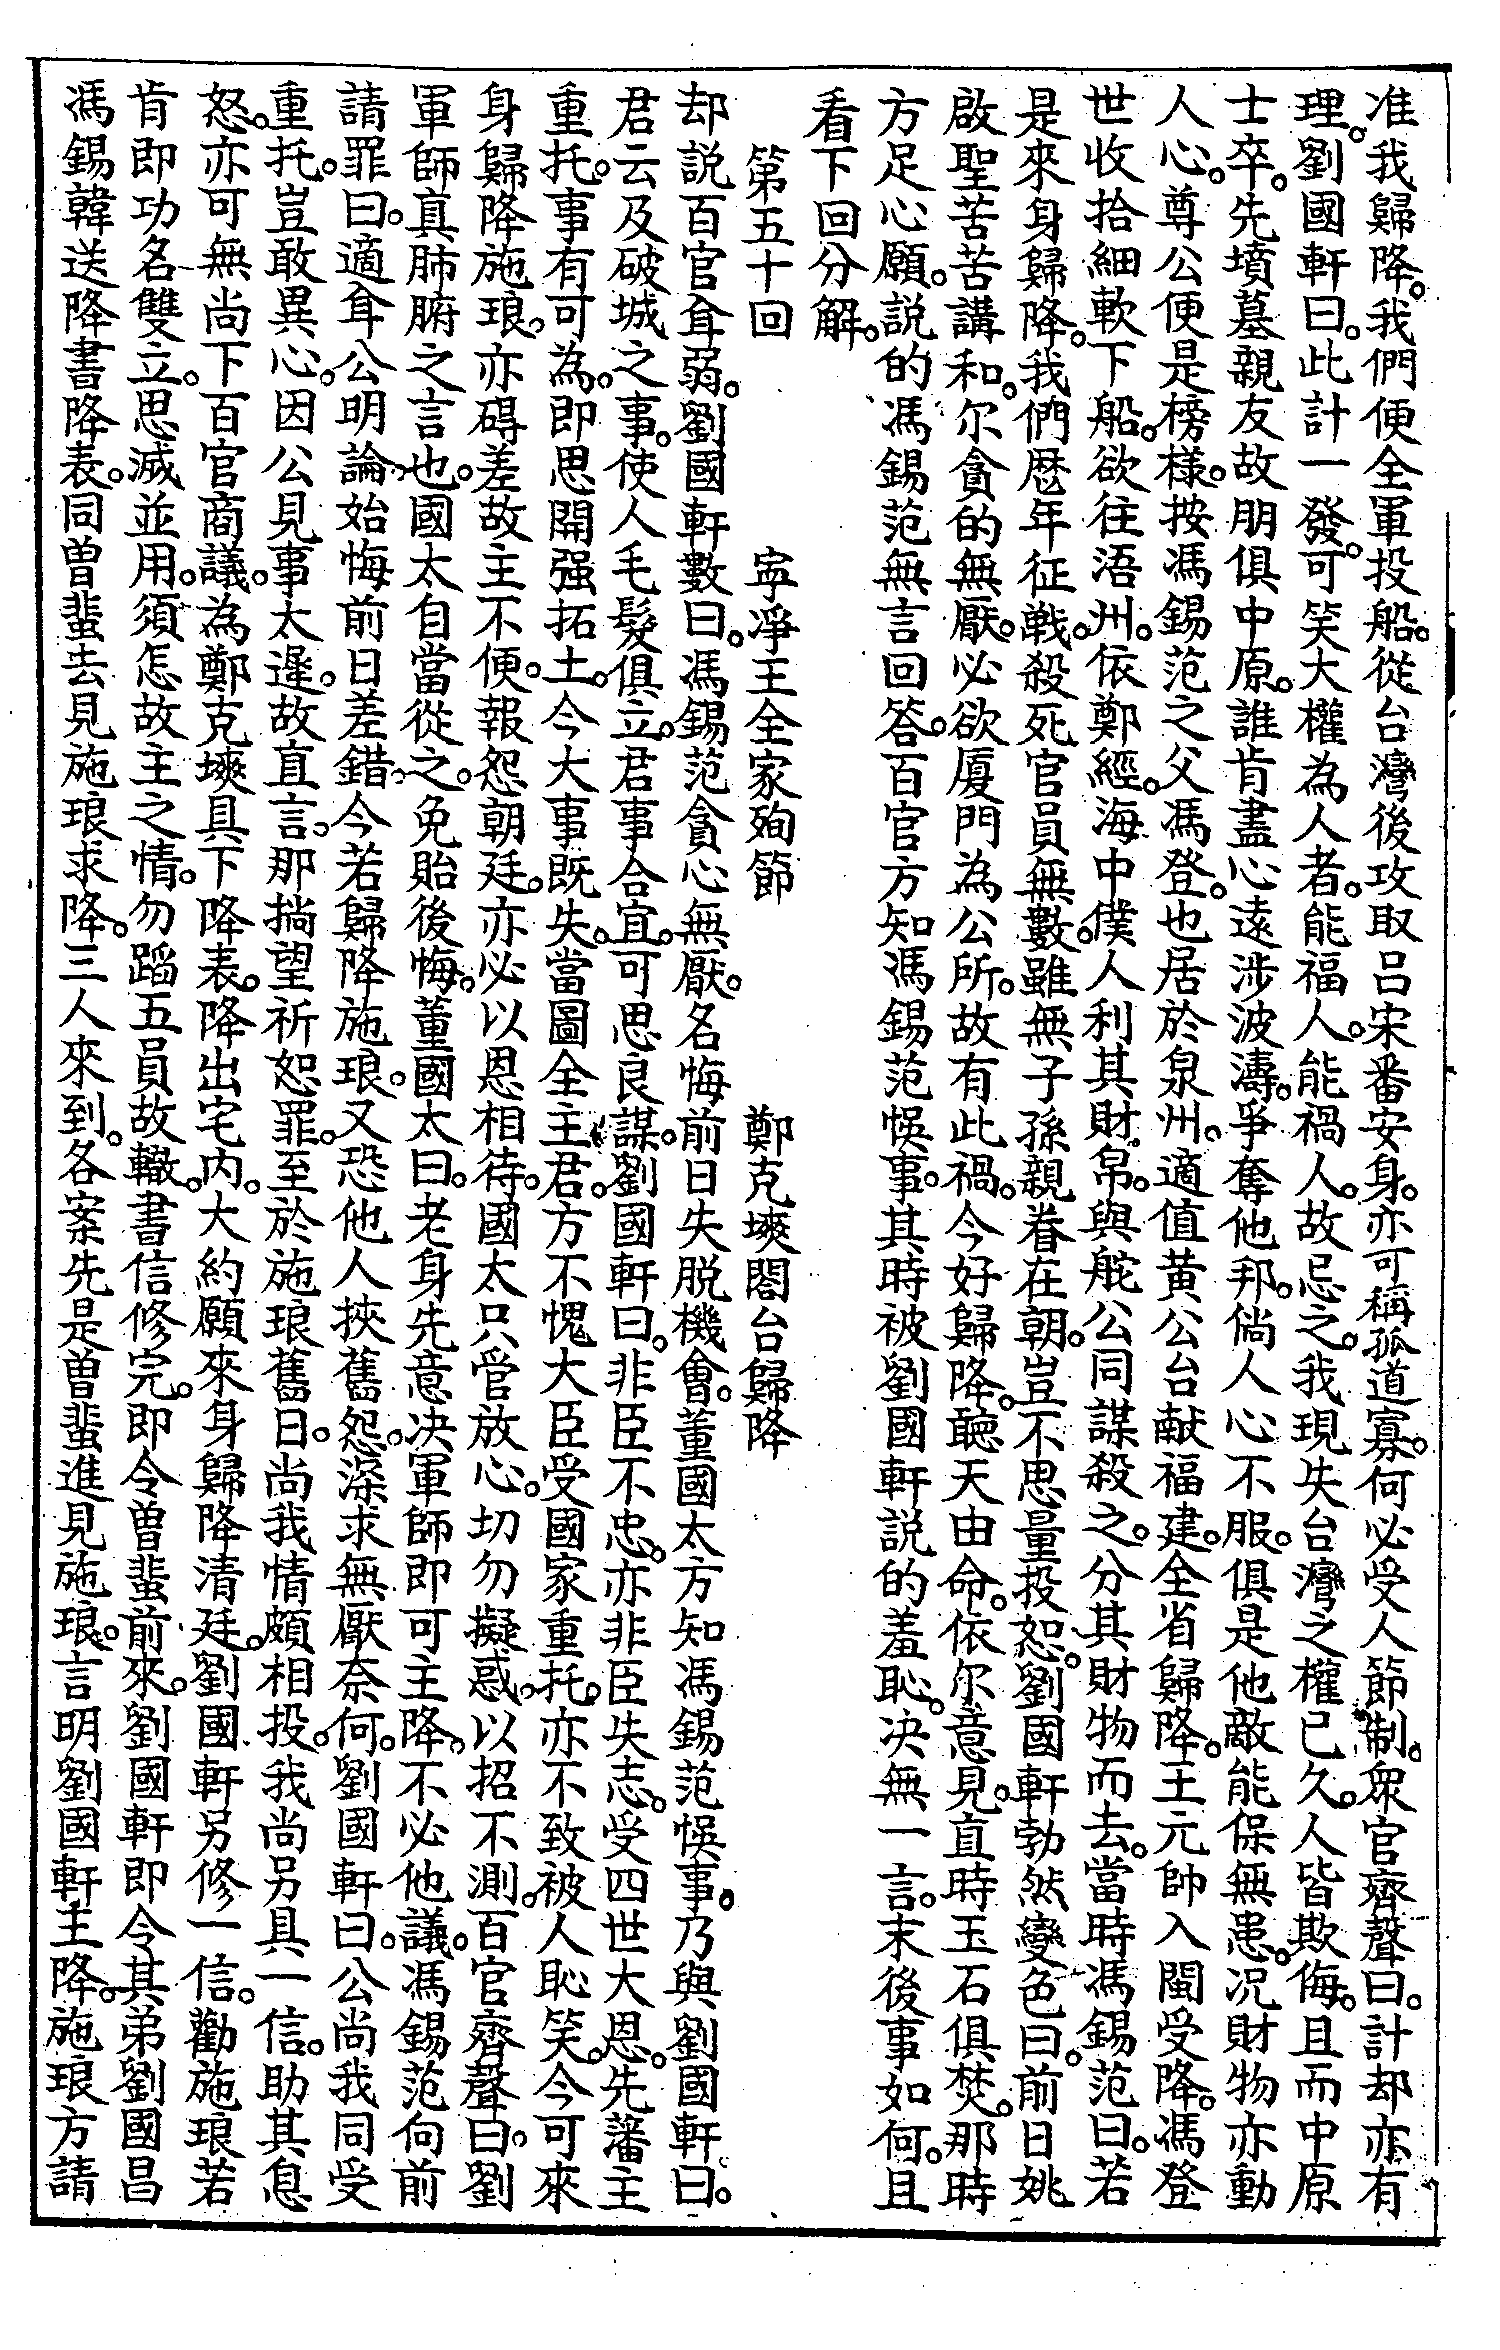 准我歸降。我們便全軍投船。從台灣後攻取呂宋番安身。亦可稱孤道寡。何必受人節制。眾官齊聲曰。計却亦有
理。劉國軒曰。此計一發。可笑大權為人者。能福人。能禍人。故忌之。我現失台灣之權已久。人皆欺侮。且而中原
士卒。先墳墓親友故朋俱中原。誰肯盡心遠涉波濤。爭奪他邦。倘人心不服。俱是他敵能保無患。况財物亦動
人心。尊公便是榜樣。按馮錫范之父馮登。也居於泉州。適值黃公台献福建。全省歸降。王元帥入閩受降。馮登
世收拾細軟下船。欲往浯州。依鄭經。海中僕人利其財帛。與舵公同謀殺之。分其財物而去。當時馮錫范曰。若
是來身歸降。我們歷年征戰。殺死官員無數。雖無子孫親眷在朝。豈不思量投恕。劉國軒勃然變色曰。前日姚
啟聖苦苦講和。尔貪的無厭。必欲廈門為公所。故有此禍。今好歸降。聽天由命。依尔意見。直時玉石俱焚。那時
方足心願。說的馮錫范無言回答。百官方知馮錫范悞事。其時被劉國軒說的羞恥。决無一言。末後事如何。且
看下回分解。
第五十回　寕凈王全家殉節　鄭克塽閤台歸降
却説百官耸弱。劉國軒數曰。馮錫范貪心無厭。名悔前日失脱機會。董國太方知馮錫范悞事。乃與劉國軒曰。
君云及破城之事。使人毛髮俱立。君事合宜。可思良謀。劉國軒曰。非臣不忠。亦非臣失志。受四世大恩。先藩主
重托。事有可為。即思開强拓土。今大事既失。當圖全主君。方不愧大臣受國家重托。亦不致被人恥笑。今可來
身歸降施琅。亦碍差故主不便。報怨朝廷。亦必以恩相待。國太只管放心。切勿擬惑。以招不測。百官齊聲曰。劉
軍師真肺腑之言也。國太自當從之。免貽後悔。董國太曰。老身先意决。軍師即可主降。不必他議。馮錫范向前
請罪曰。適耸公明論。始悔前日差錯。今若歸降施琅。又恐他人挾舊怨。深求無厭奈何。劉國軒曰。公尚我同受
重托。豈敢異心。因公見事太遲。故直言。那掯望祈恕罪。至於施琅舊日。尚我情頗相投。我尚另具一信。助其息
怒。亦可無尚下百官商議。為鄭克塽具下降表。降出宅内。大約願來身歸降清廷。劉國軒另修一信。勸施琅若
肯即功名雙立。思滅並用。須怎故主之情。勿蹈五員故轍。書信修完。即令曾蜚前來。劉國軒即令其弟劉國昌
馮錫韓送降書降表。同曾蜚去見施琅求降。三人來到。各案先是曾蜚進見施琅。言明劉國軒主降。施琅方請